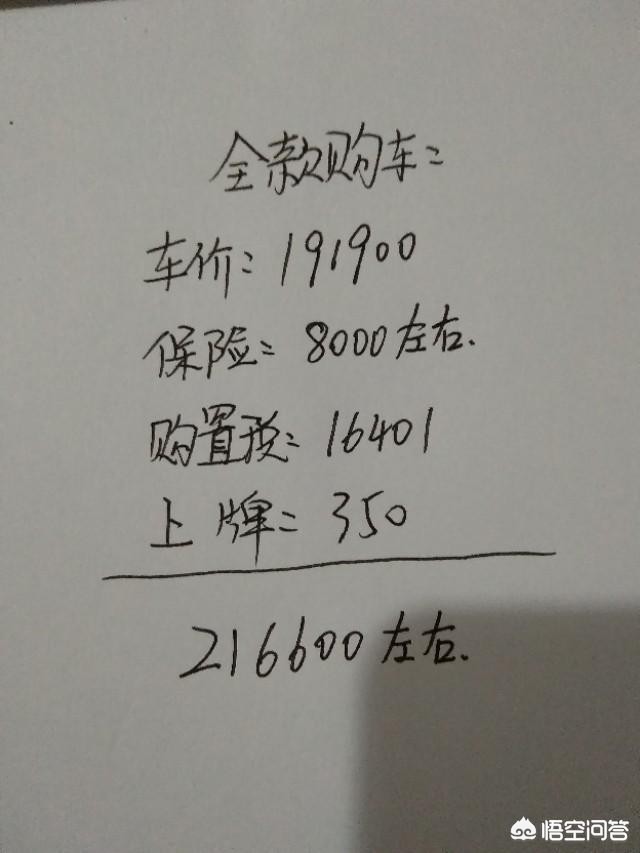 全款购车:
车价: 191900
保险: 8000左右.
购置税: 16401
上牌: 350
216600左右.
悟空问答